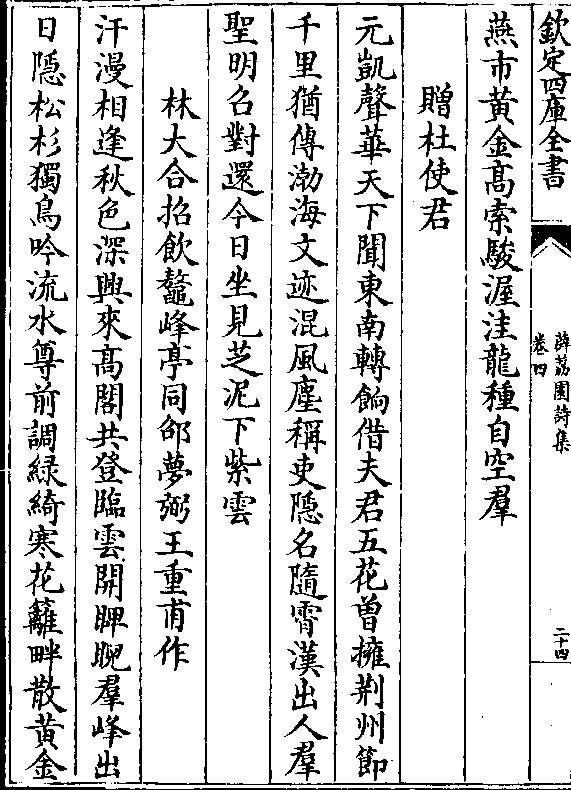 欽定四庫全書
薜荔園詩集
卷四
二十四
燕市黃金髙索駿渥洼龍種自空羣
贈杜使君
元凱聲華天下聞東南轉餉借夫君五花曽擁荆州節
千里猶傳渤海文迹混風塵稱吏隠名隨霄漢出人羣
聖明召對還今日坐見芝泥下紫雲
林大合招飲鼇峰亭同邰夢弼王重甫作
汗漫相逢秋色深興來髙閣共登臨雲開睥睨羣峰出
日隠松杉獨鳥吟流水尊前調緑綺寒花籬畔散黄金